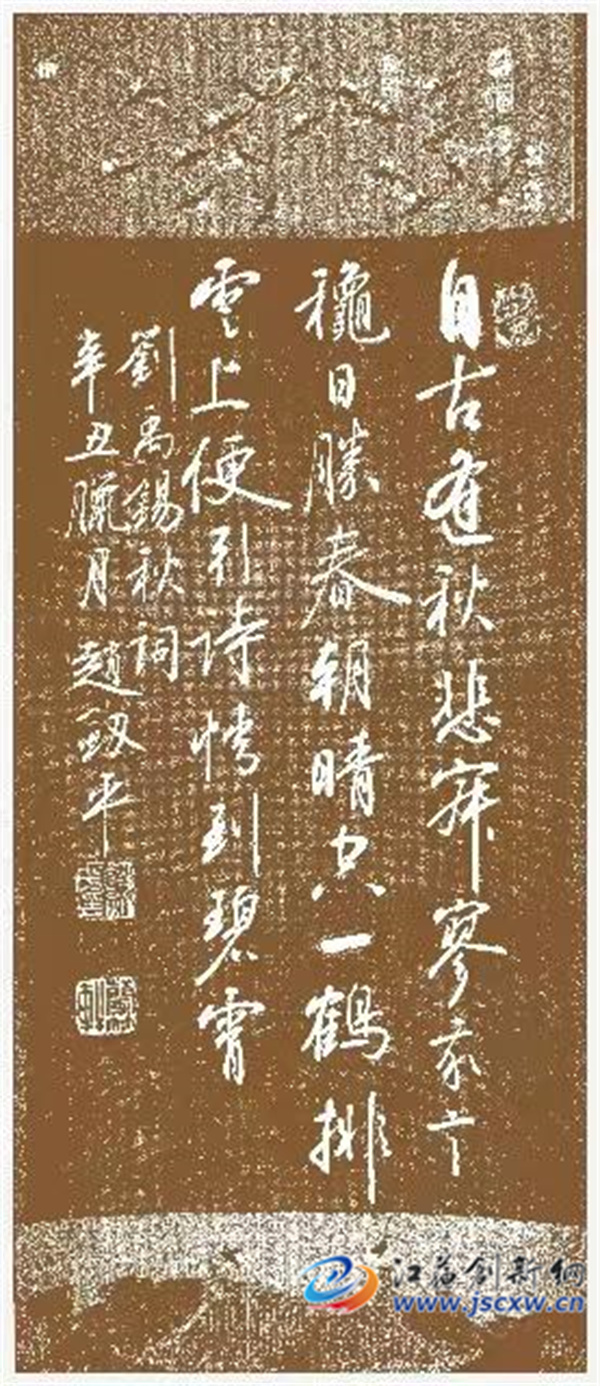 自古逢秋悲寂寥我言
穐日勝春朝晴空一鶴排
雲上便引詩情到碧霄
劉禹錫秋詞
辛丑臘月趙劔平
江苏创新网
www.jscxw.cn